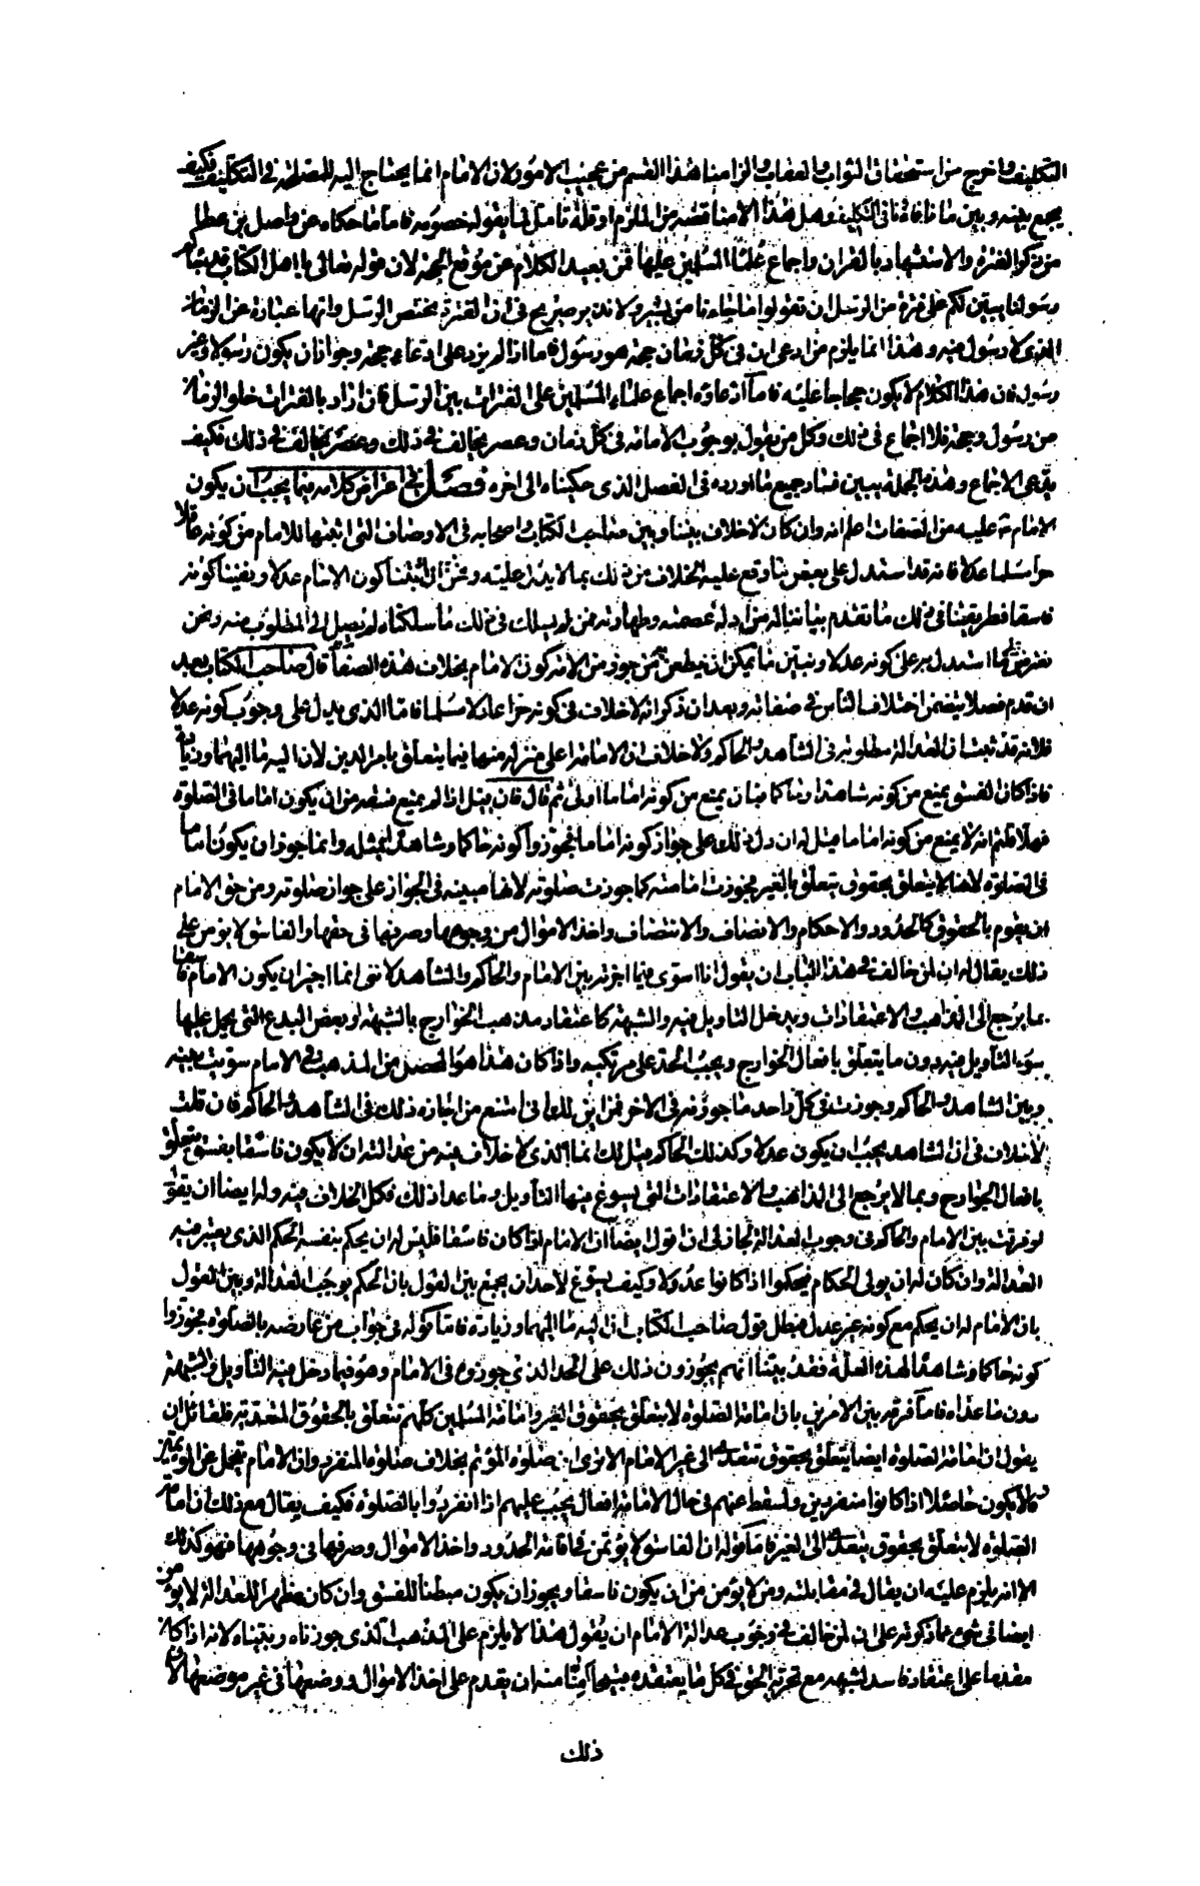 التكليف واخرج من استحقاق الثواب والعقاب والزامنا هذا القسم من عجيب الامور لان الامام انما يحتاج اليه للمصلحة في التكليف فكيف
يجمع بينه وبين ما نافاه في التكليف وهل هذا الا مناقضة من الملزم او قلة تأمل لما يقوله خصومه فاما ما حكاه عن واصل بن عطا
من ذكر الفترة والاستشهاد بالقران واجماع علماء المسلمين عليها فمن بعيد الكلام عن موقع الحجة لان قوله تعالى يا اهل الكتاب قد جاءكم
رسولنا يبين لكم على فترة من الرسل ان تقولوا ما جاءنا من بشير ولا نذير صريح في ان الفترة تختص الرسل وانها عبارة عن الزمان
الذي لا رسول فيه وهذا انما يلزم من ادعى ان في كل زمان حجة هو رسول فاما اذا لم يزد على ادعاء حجة وجواز ان يكون رسولا وغير
رسول فان هذا الكلام لا يكون حجاجا عليه فاما ادعاؤه اجماع علماء المسلمين على الفترات بين الرسل فان اراد بالفترات خلو الزمان
من رسول وحجة فلا اجماع في ذلك وكل من يقول بوجوب الامامة في كل زمان وعصر يخالف في ذلك وعصر يخالف في ذلك فكيف
يدعى الاجماع وهذه الجملة تبين فساد جميع ما اورده في الفصل الذي حكيناه الى اخره فصل في اعتراض كلامه فيما يجب ان يكون
الامام عليه من الصفات اعلم انه وان كان لا خلاف بيننا وبين صاحب الكتاب واصحابه في الاوصاف التي اثبتها للامام من كونه عاقلا
حرا مسلما عدلا فانه قد استدل على بعض ما وقع عليه الخلاف من ذلك بما لا يدل عليه ونحن اذا اثبتنا كون الامام عدلا ونفينا كونه
فاسقا فطريقنا في ذلك ما تقدم بياننا له من ادلة عصمته وطهارته فمن لم يسلك في ذلك ما سلكناه لم يصل الى المطلوب منه ونحن
نعترض ما استدل به على كونه عدلا ونبين ما يمكن ان يطعن به من جوز من الامة كون الامام بخلاف هذه الصفة قال صاحب الكتاب بعد
ان قدم فصلا يتضمن اختلاف الناس في صفاته وبعد ان ذكر انه لا خلاف في كونه حرا عاقلا مسلما فاما الذي يدل على وجوب كونه عدلا
فلانه قد ثبت ان العدالة مطلوبة في الشاهد والحاكم ولا خلاف ان الامامة اعلى منزلة منها فيما يتعلق بامر الدين لان اليه ما اليهما وزيادة
فاذا كان الفسق يمنع من كونه شاهدا وحاكما فبان يمنع من كونه اماما اولى ثم قال فان قيل اذا لم يمنع فسقه من ان يكون اماما في الصلوة
فهلا قلتم انه لا يمنع من كونه اماما قيل له ان دل ذلك على جواز كونه اماما فجوزوا كونه حاكما وشاهدا بمثله وانما جوز ان يكون اماما
في الصلوة لانها لا يتعلق بحقوق تتعلق بالغير فجوزت امامته كما جوزت صلوته لانها مبنية في الجواز على جواز صلوته ومن حق الامام
ان يقوم بالحقوق كالحدود والاحكام والانصاف والانتصاف واخذ الاموال من وجوهها وصرفها في حقها والفاسق لا يؤمن على
ذلك يقال له ان لمن خالف في هذا الباب ان يقول انا اسوى فيما اجزته بين الامام والحاكم والشاهد لانني انما اجيز ان يكون الامام فاسقا
بما يرجع الى المذاهب والاعتقادات ويدخل التاويل فيه والشبهة كاعتقاد مذهب الخوارج بالشبهة او بعض البدع التي يحمل عليها
سوء التأويل فيه دون ما يتعلق بافعال الخوارج ويجب الحد على مرتكبه واذا كان هذا هو المحصل من المذهب في الامام سويت بينه
وبين الشاهد والحاكم وجوزت في كل واحد ما جوزته في الاخر فمن اين لك انى امتنع من اجازة ذلك في الشاهد والحاكم فان قلت
لا خلاف في ان الشاهد يجب ان يكون عدلا وكذلك الحاكم قيل لك انما الذي لا خلاف فيه من عدالته ان لا يكون فاسقا بفسق يتعلق
بافعال الجوارح وبما لا يرجع الى المذاهب والاعتقادات التي يسوغ فيها التأويل وما عدا ذلك فكل الخلاف فيه وله ايضا ان يقول
لو فرقت بين الامام والحاكم في وجوب العدالة لجاز لى ان اقول ايضا ان الامام اذا كان فاسقا فليس له ان يحكم بنفسه الحكم الذي يعتبر فيه
العدالة وان كان له ان يولى الحكام فيحكموا اذا كانوا عدولا وكيف يسوغ لاحد ان يجمع بين القول بان الحكم يوجب العدالة وبين القول
بان الامام له ان يحكم مع كونه غير عدل فبطل قول صاحب الكتاب ان اليه ما اليهما وزيادة فاما قوله في جواب من عارضه بالصلوة فجوزوا
كونه حاكما وشاهدا لهذه العلة فقد بينا انهم يجوزون ذلك على الحد الذي جوزوه في الامام وهو فيما دخل فيه التأويل والشبهة
دون ما عداه فاما فرقه بين الامرين بان امامة الصلوة لا يتعلق بحقوق الغير وامامة المسلمين كلهم تتعلق بالحقوق المتعدية فلقائل ان
يقول ان امامة الصلوة ايضا يتعلق بحقوق تتعدى الى غير الامام الا ترى ان صلوة المؤتم بخلاف صلوة المنفرد وان الامام يتحمل عن المؤتمين
ما لا يكون حاصلا اذا كانوا منفردين ولسقط عنهم في حال الامامة افعال يجب عليهم اذا انفردوا بالصلوة فكيف يقال مع ذلك ان امامة
الصلوة لا يتعلق بحقوق يتعدى الى الغير فاما قوله ان الفاسق لا يؤتمن في اقامة الحدود واخذ الاموال وصرفها في وجوهها فهو كذلك
الا انه يلزم عليه ان يقال في مقابلته ومن لا يؤمن من ان يكون فاسقا ويجوز ان يكون مبطنا للفسق وان كان مظهرا للعدالة لا يؤمن
ايضا في شيء مما ذكرته على ان لمن خالف في وجوب عدالة الامام ان يقول هذا لا يلزم على المذهب الذي جوزناه وبيناه لانه اذا كان
مقدما على اعتقاد فاسد لشبهة مع تحرية الحق في كل ما يعتقده فيها امنا منه ان يقدم على اخذ الاموال ووضعها في غير موضعها لان
ذلك